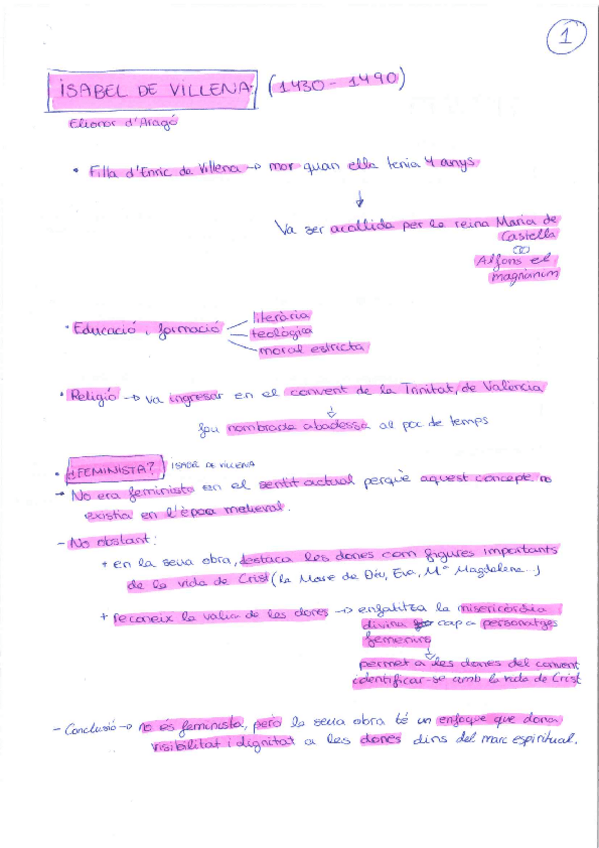 1
ISABEL DE VILLENA (1430 - 1490)
Elionor d'Aragó
• Filla d'Enric de Villena → mor quan ella tenia 4 anys
↓
Va ser acollida per la reina Maria de
Castella
∞
Alfons el
magnànim
• Educació i formació
literària
teològica
moral estricta
• Religió → va ingresar en el convent de la Trinitat, de València
↓
fou nombrada abadessa al poc de temps
• ¿FEMINISTA? ISABEL DE VILLENA
→ No era feminista en el sentit actual perquè aquest concepte no
existia en l'època medieval.
- No obstant:
+ en la seua obra, destaca les dones com figures importants
de la vida de Crist (la Mare de Déu, Eva, Mª Magdalena...)
+ reconeix la valia de les dones → enfatitza la misericòrdia
divina cap a personatges
femenins
↓
permet a les dones del convent
identificar-se amb la vida de Crist
- Conclusió → no és feminista, però la seua obra té un enfoque que dona
visibilitat i dignitat a les dones dins del marc espiritual.